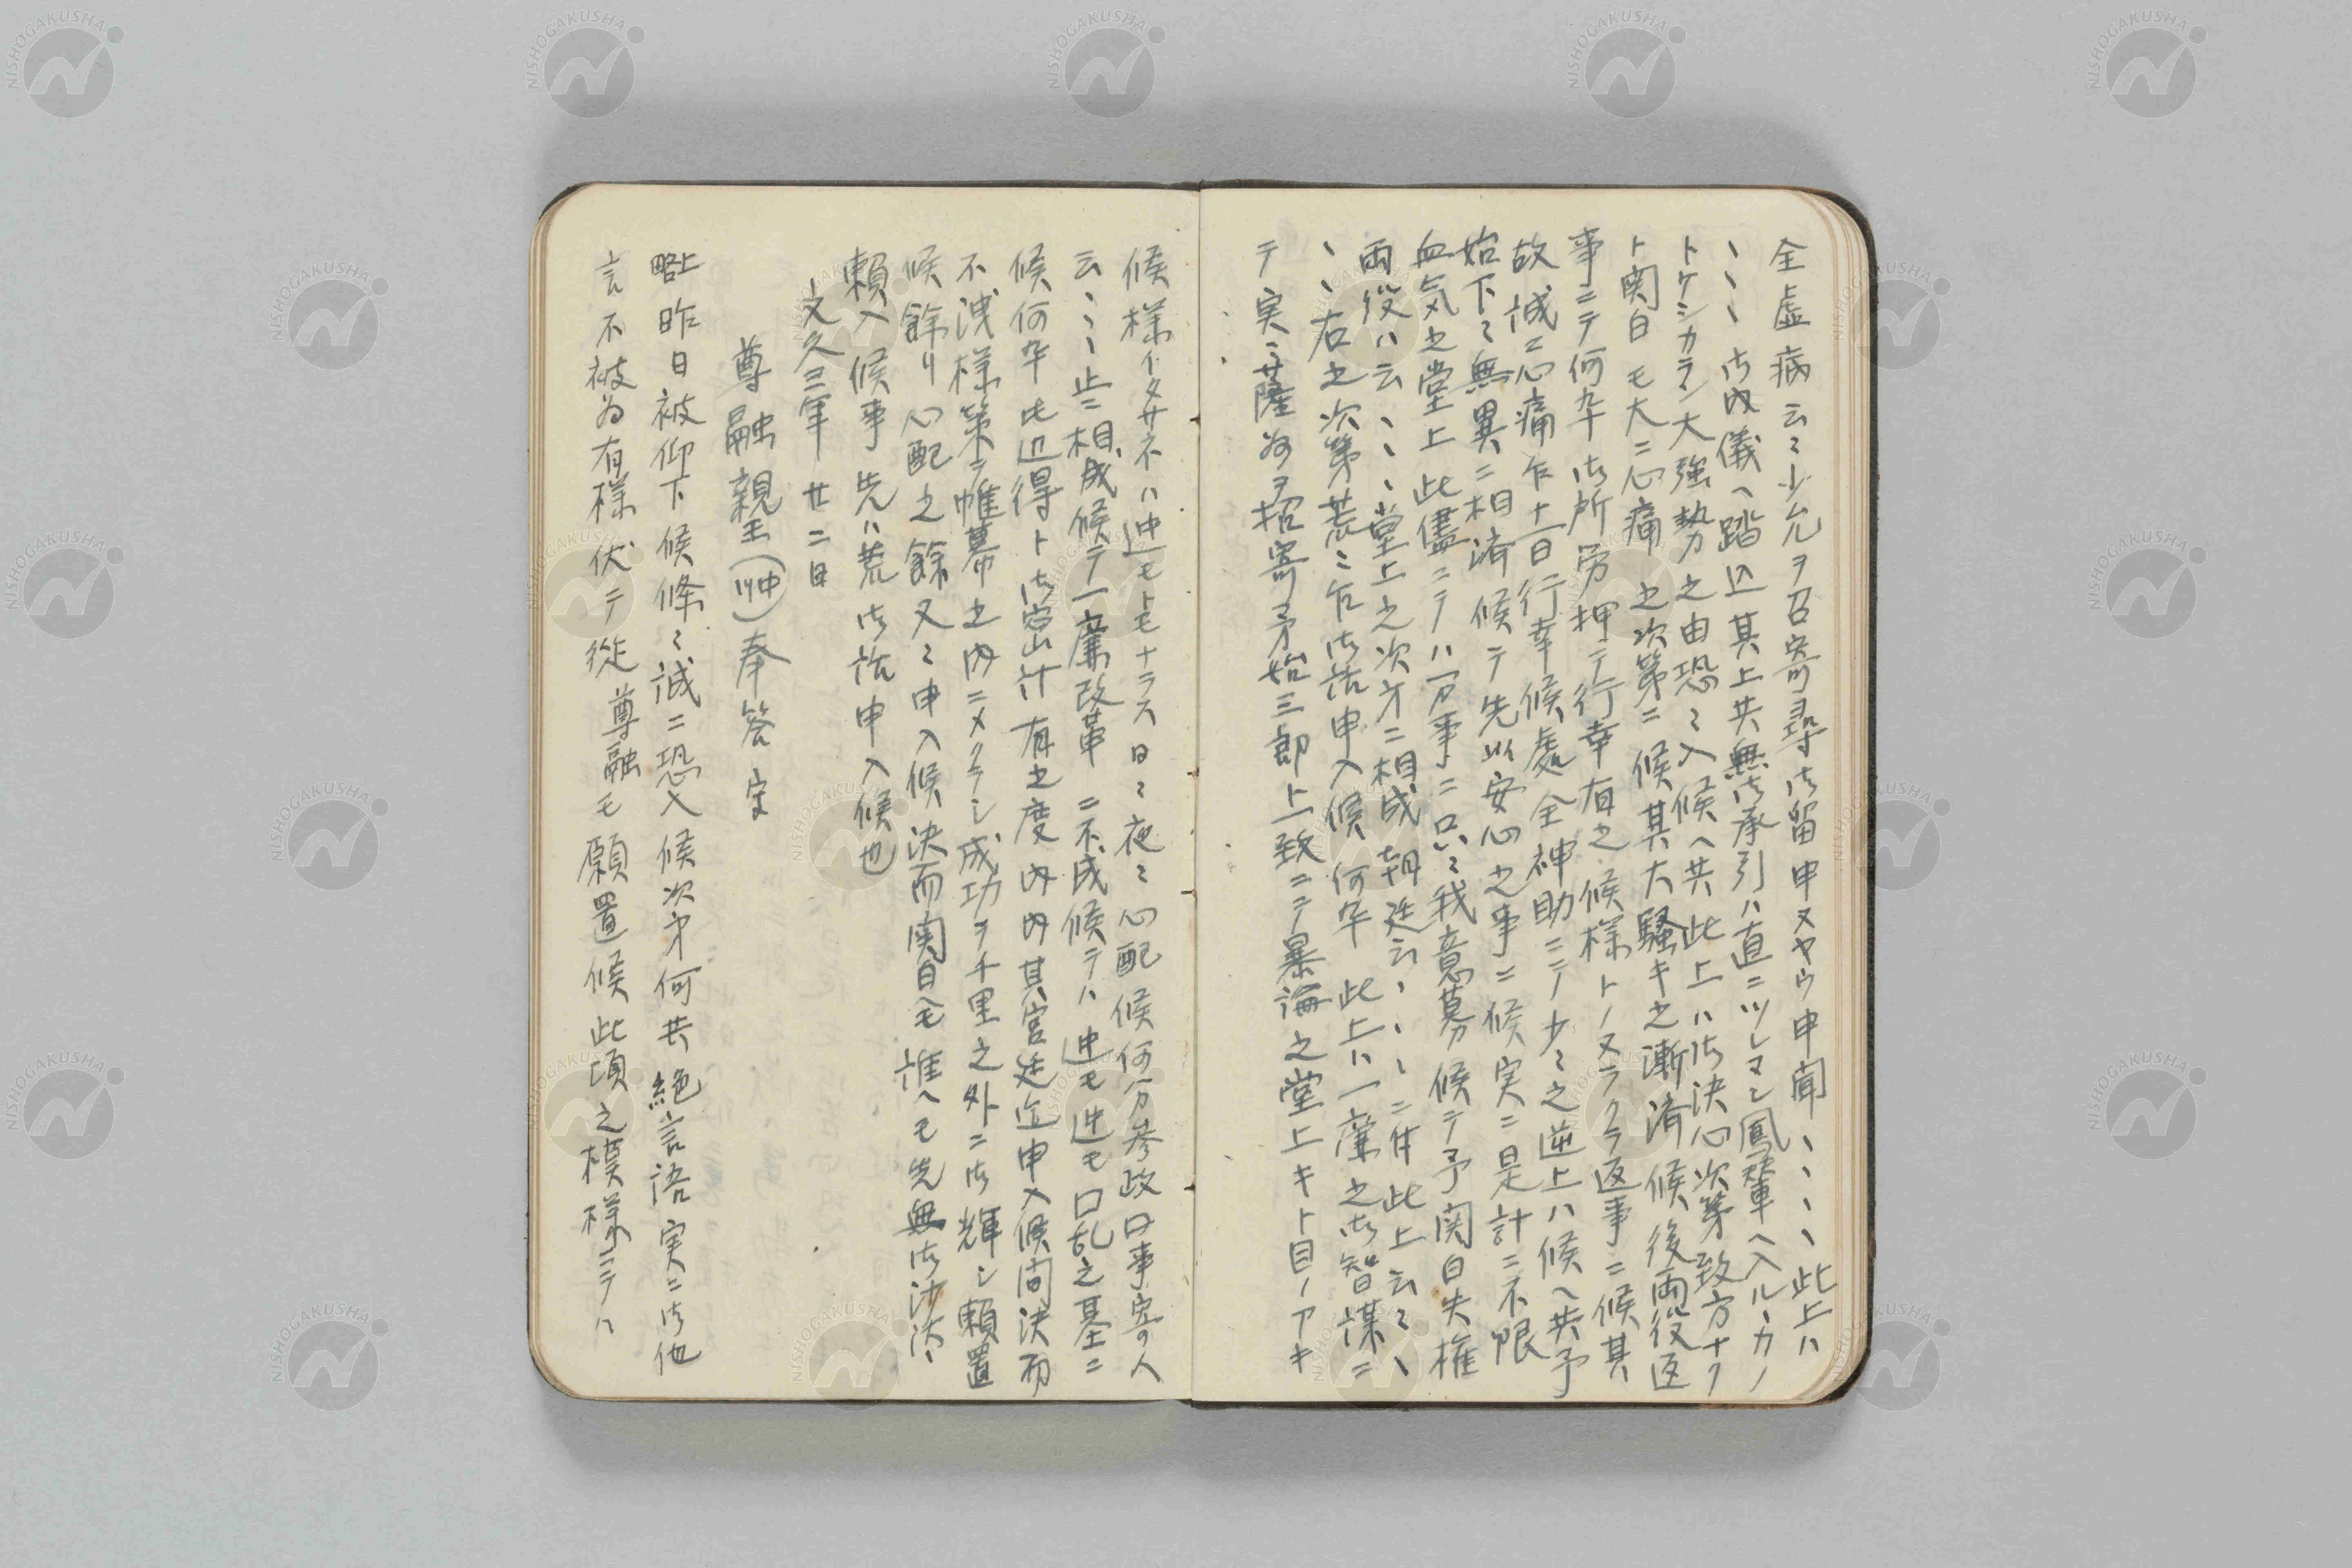 全虚病云々少允ヲ召寄尋御留申スヤウ申聞、、、、此上ハ
、、、御内儀ヘ踏込其上共無御承引ハ直ニツレマシ鳳輦ヘ入ルヽカノ
トケシカラン大強勢之由恐々入候ヘ共此上ハ御決心次第致方ナク
ト関白モ大ニ心痛之次第ニ候其大騒キ之漸済候後両役返
事ニテ何卒御所労押テ行幸有之候様トノスラクラ返事ニ候其
故誠ニ心痛乍十一日行幸候処全神助ニテ少々之逆上ハ候ヘ共予
始下々無異ニ相済候テ先以安心之事ニ候実ニ是計ニ不限
血気之堂上此儘ニテハ万事ニ只々我意募候テ予関白失権
両役ハ云、、、堂上之次才ニ相成朝廷云、、、ニ付此上云々、
、、右之次第荒々乍御話申入候何卒此上ハ一廉之御智謀ニ
テ実ニ薩為ヲ招寄予始三郎上致ニテ暴論之堂上キト目ノアキ
候様イタサネハ迚モトモナラス日々夜々心配候何分参政口事寄人
云、、止ニ相成候テ一廉改革ニ不成候テハ迚モ迚モ口乱之基ニ
候何卒此辺得ト御密計有之度内内其宮迄迄申入候間決而
不洩様策ヲ帷幕之内ニメクラシ成功ヲ千里之外ニ御輝シ頼置
候餘リ心配之餘又々申入候決而関白ヘモ誰ヘモ先無御沙汰、
頼入候事先ハ荒御話申入候也
文久三年 廿二日
尊融親王(沖)奉答宸
略上昨日被仰下候條々誠ニ恐入候次才何共絶言語実ニ御他
言不被為有様伏テ従 尊融モ願置候此頃之模様ニテハ